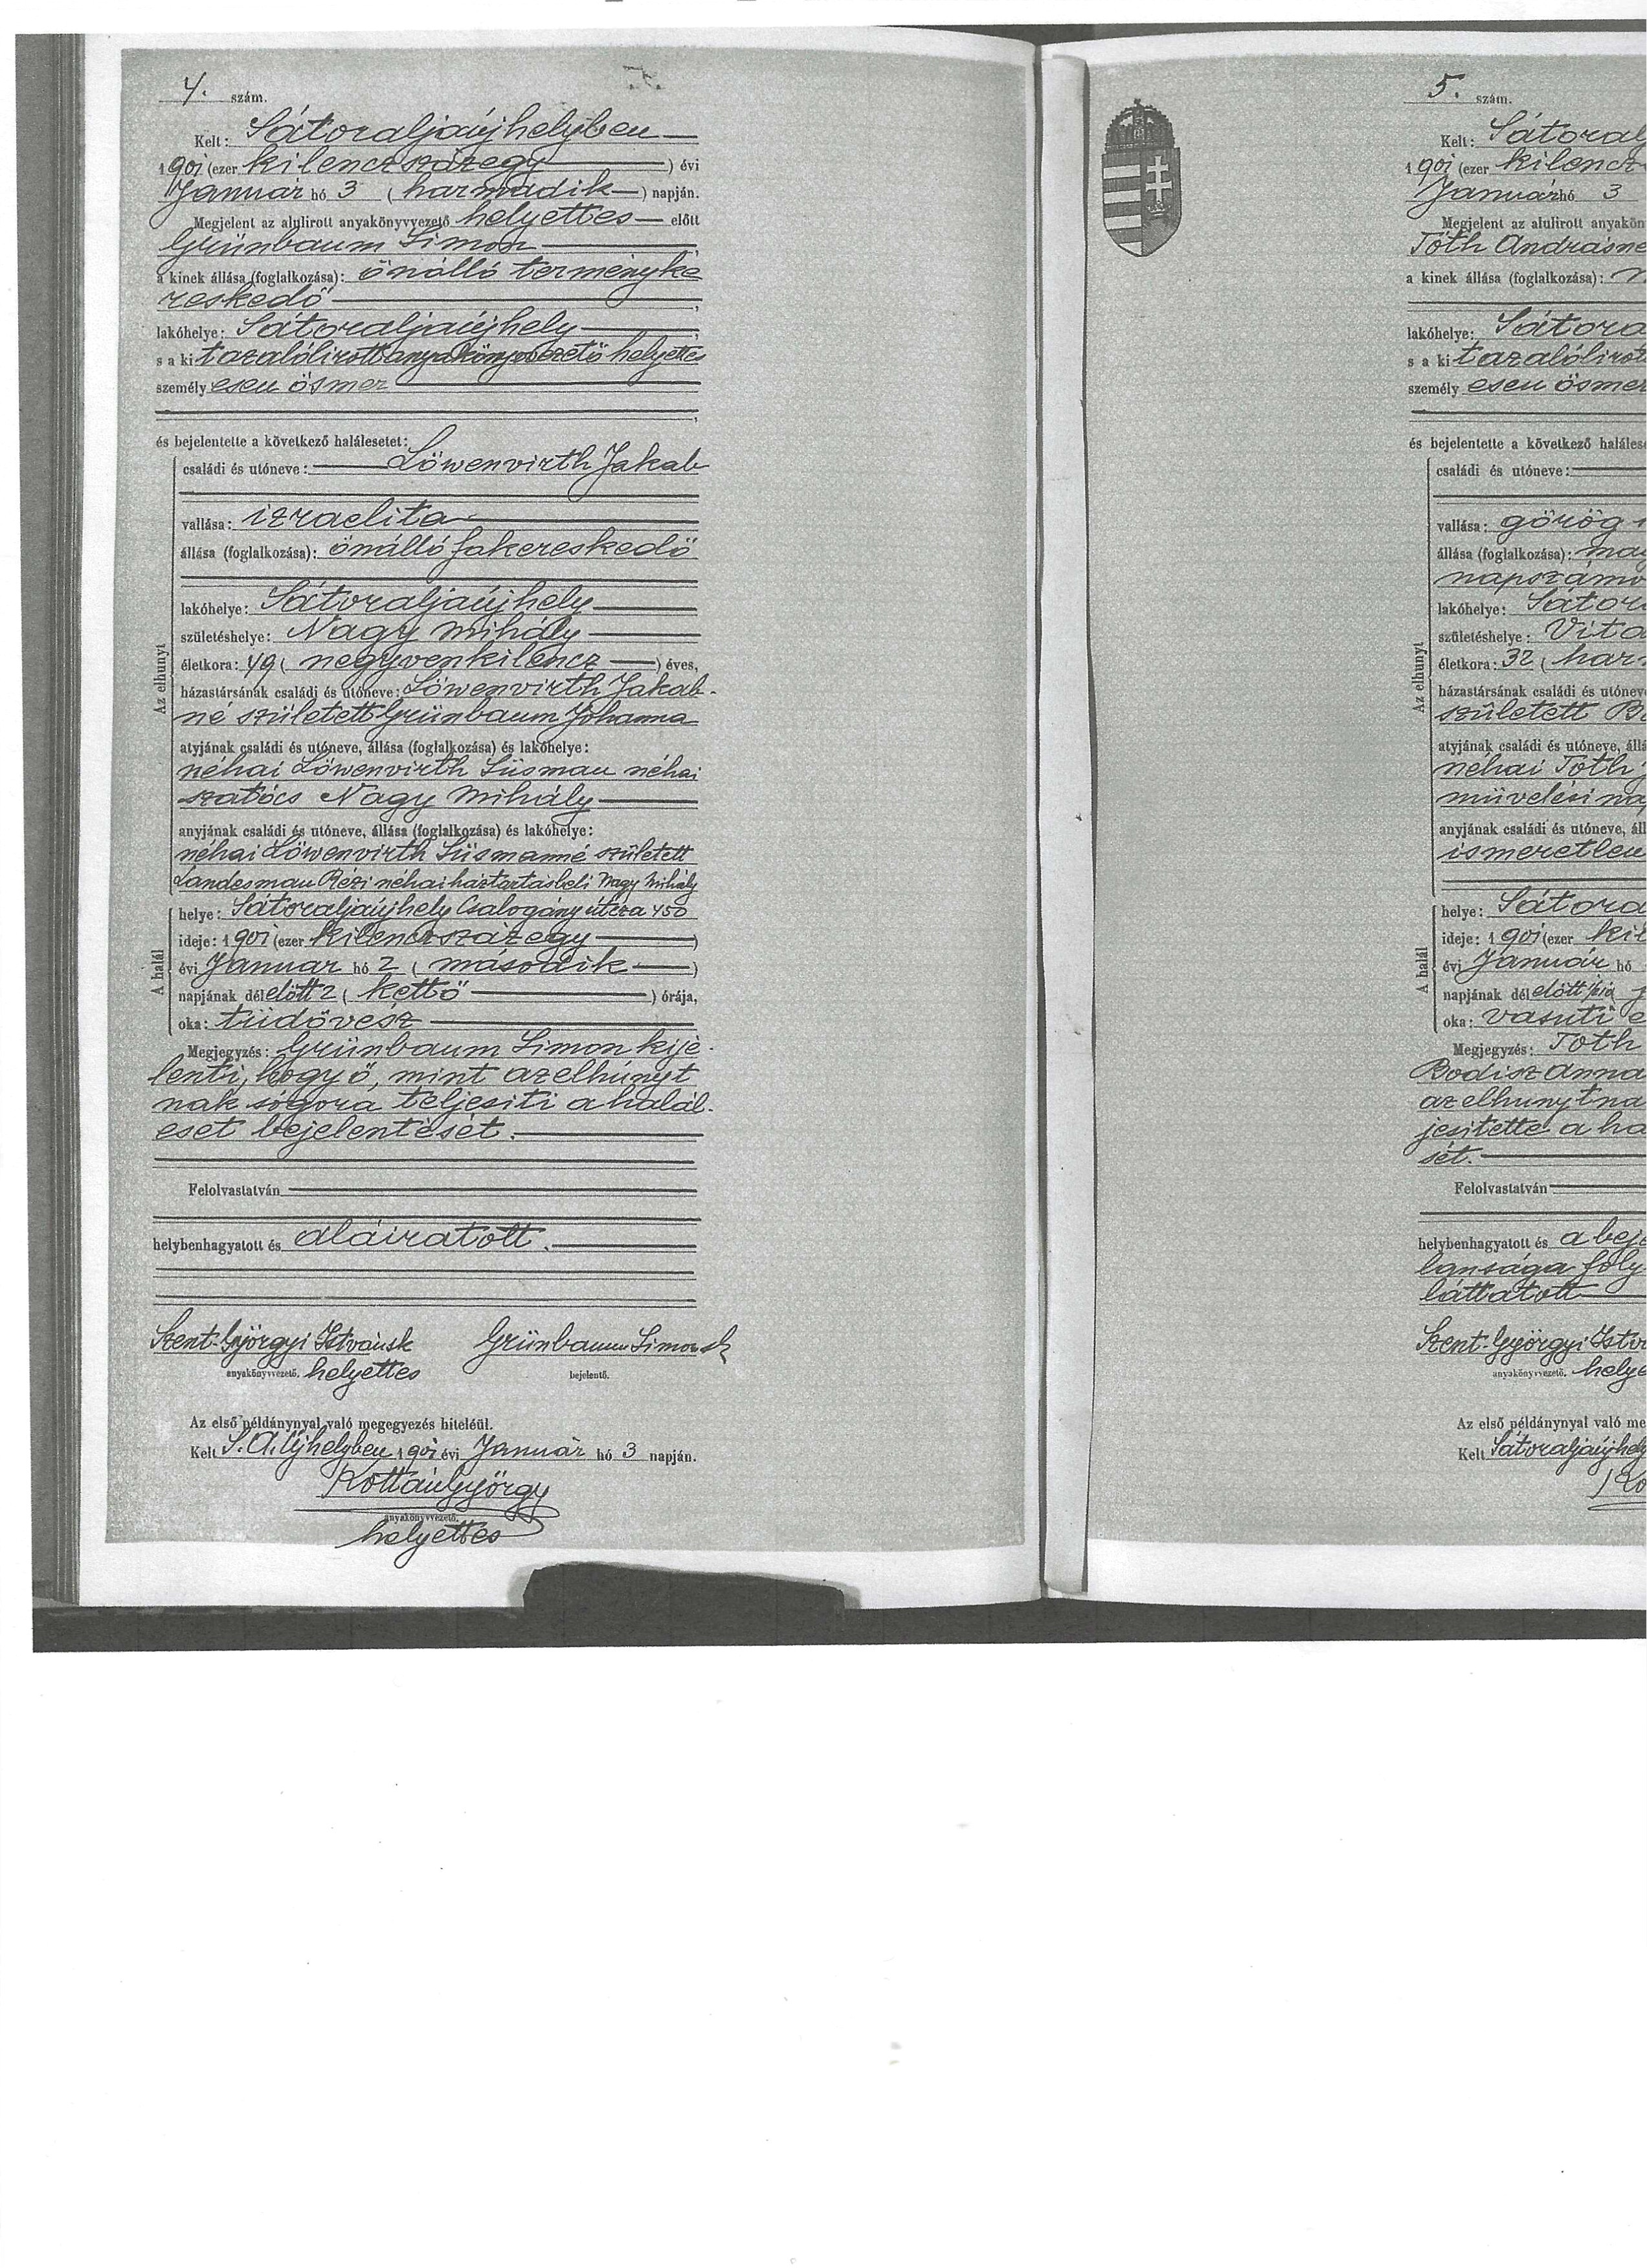 4. szám.
Kelt: Sátoraljaújhelyben
1901 (ezer kilenczszázegy) évi
Január hó 3 (harmadik) napján.
Megjelent az alulirott anyakönyvvezető helyettes előtt
Grünbaum Simon
a kinek állása (foglalkozása): önálló terményke
reskedő
lakóhelye: Sátoraljaújhely
s a kit azalólirott anyakönyvvezető helyettes
személyesen ösmer
és bejelentette a következő halálesetet:
Az elhunyt
családi és utóneve: Löwenvirth Jakab
vallása: izraelita
állása (foglalkozása): önálló fakereskedő
lakóhelye: Sátoraljaújhely
születéshelye: Nagy Mihály
életkora: 49 (negyvenkilencz) éves,
házastársának családi és utóneve: Löwenvirth Jakab-
né született Grünbaum Johanna
atyjának családi és utóneve, állása (foglalkozása) és lakóhelye:
néhai Löwenvirth Süsman néhai
szatócs Nagy Mihály
anyjának családi és utóneve, állása (foglalkozása) és lakóhelye:
néhai Löwenvirth Süsmanné született
Landesman Rézi néhai háztartásbeli Nagy Mihály
A halál
helye: Sátoraljaújhely Csalogány útcza 450
ideje: 1901 (ezer kilenczszázegy)
évi Január hó 2 (második)
napjának délelőtt 2 (kettő) órája,
oka: tüdővész
Megjegyzés: Grünbaum Simon kije-
lenti, hogy ő, mint azelhúnyt
nak sógora teljesiti a halál-
eset bejelentését.
Felolvastatván
helybenhagyatott és aláiratott.
Szent-Györgyi István sk Grünbaum Simon sk
anyakönyvvezető. helyettes bejelentő.
Az első példánynyal való megegyezés hiteléül.
Kelt S. A. Ujhelyben 1901 évi Január hó 3 napján.
Kottán György
anyakönyvvezető.
helyettes
5. szám.
Kelt: Sátoralj
1901 (ezer kilencz
Január hó 3
Megjelent az alulirott anyakön
Tóth Andrásné
a kinek állása (foglalkozása):
lakóhelye: Sátora
s a kit azalólirot
személyesen ösmer
és bejelentette a következő haláles
Az elhunyt
családi és utóneve:
vallása: görög
állása (foglalkozása): mag
napszámo
lakóhelye: Sátor
születéshelye: Vita
életkora: 32 (har
házastársának családi és utónev
született B
atyjának családi és utóneve, áll
néhai Tóth
művelési na
anyjának családi és utóneve, áll
ismeretlen
A halál
helye: Sátora
ideje: 1901 (ezer kil
évi Január hó
napjának délelőtt
oka: vasuti e
Megjegyzés: Tóth
Bodisz Anna
az elhunytna
jesitette a ha
sét.
Felolvastatván
helybenhagyatott és a beje
lansága foly
láttatott
Szent-Györgyi Istv
anyakönyvvezető. helye
Az első példánynyal való me
Kelt Sátoraljaújhely
Ko